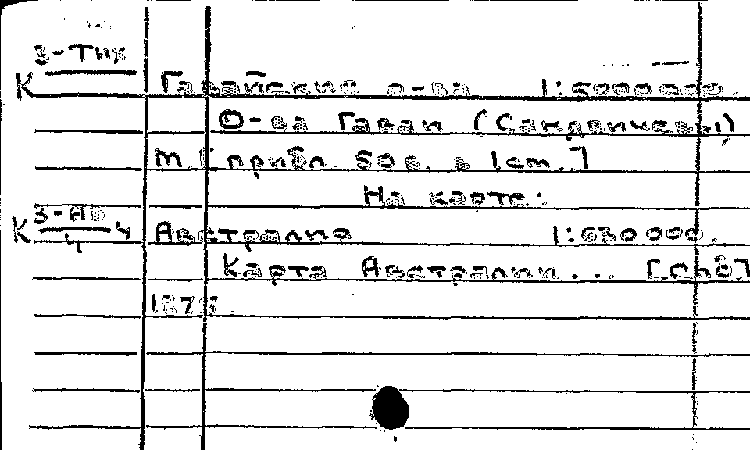 3-Тих
К Гавайские о-ва 1:5000000.
О-ва Гаваи (Сандвичевы)
м [прибл. 50 в. в 1 cm.]
На карте:
К 3-АВ 4
4 Австралия 1:630000.
Карта Австралии... [Спб]
187